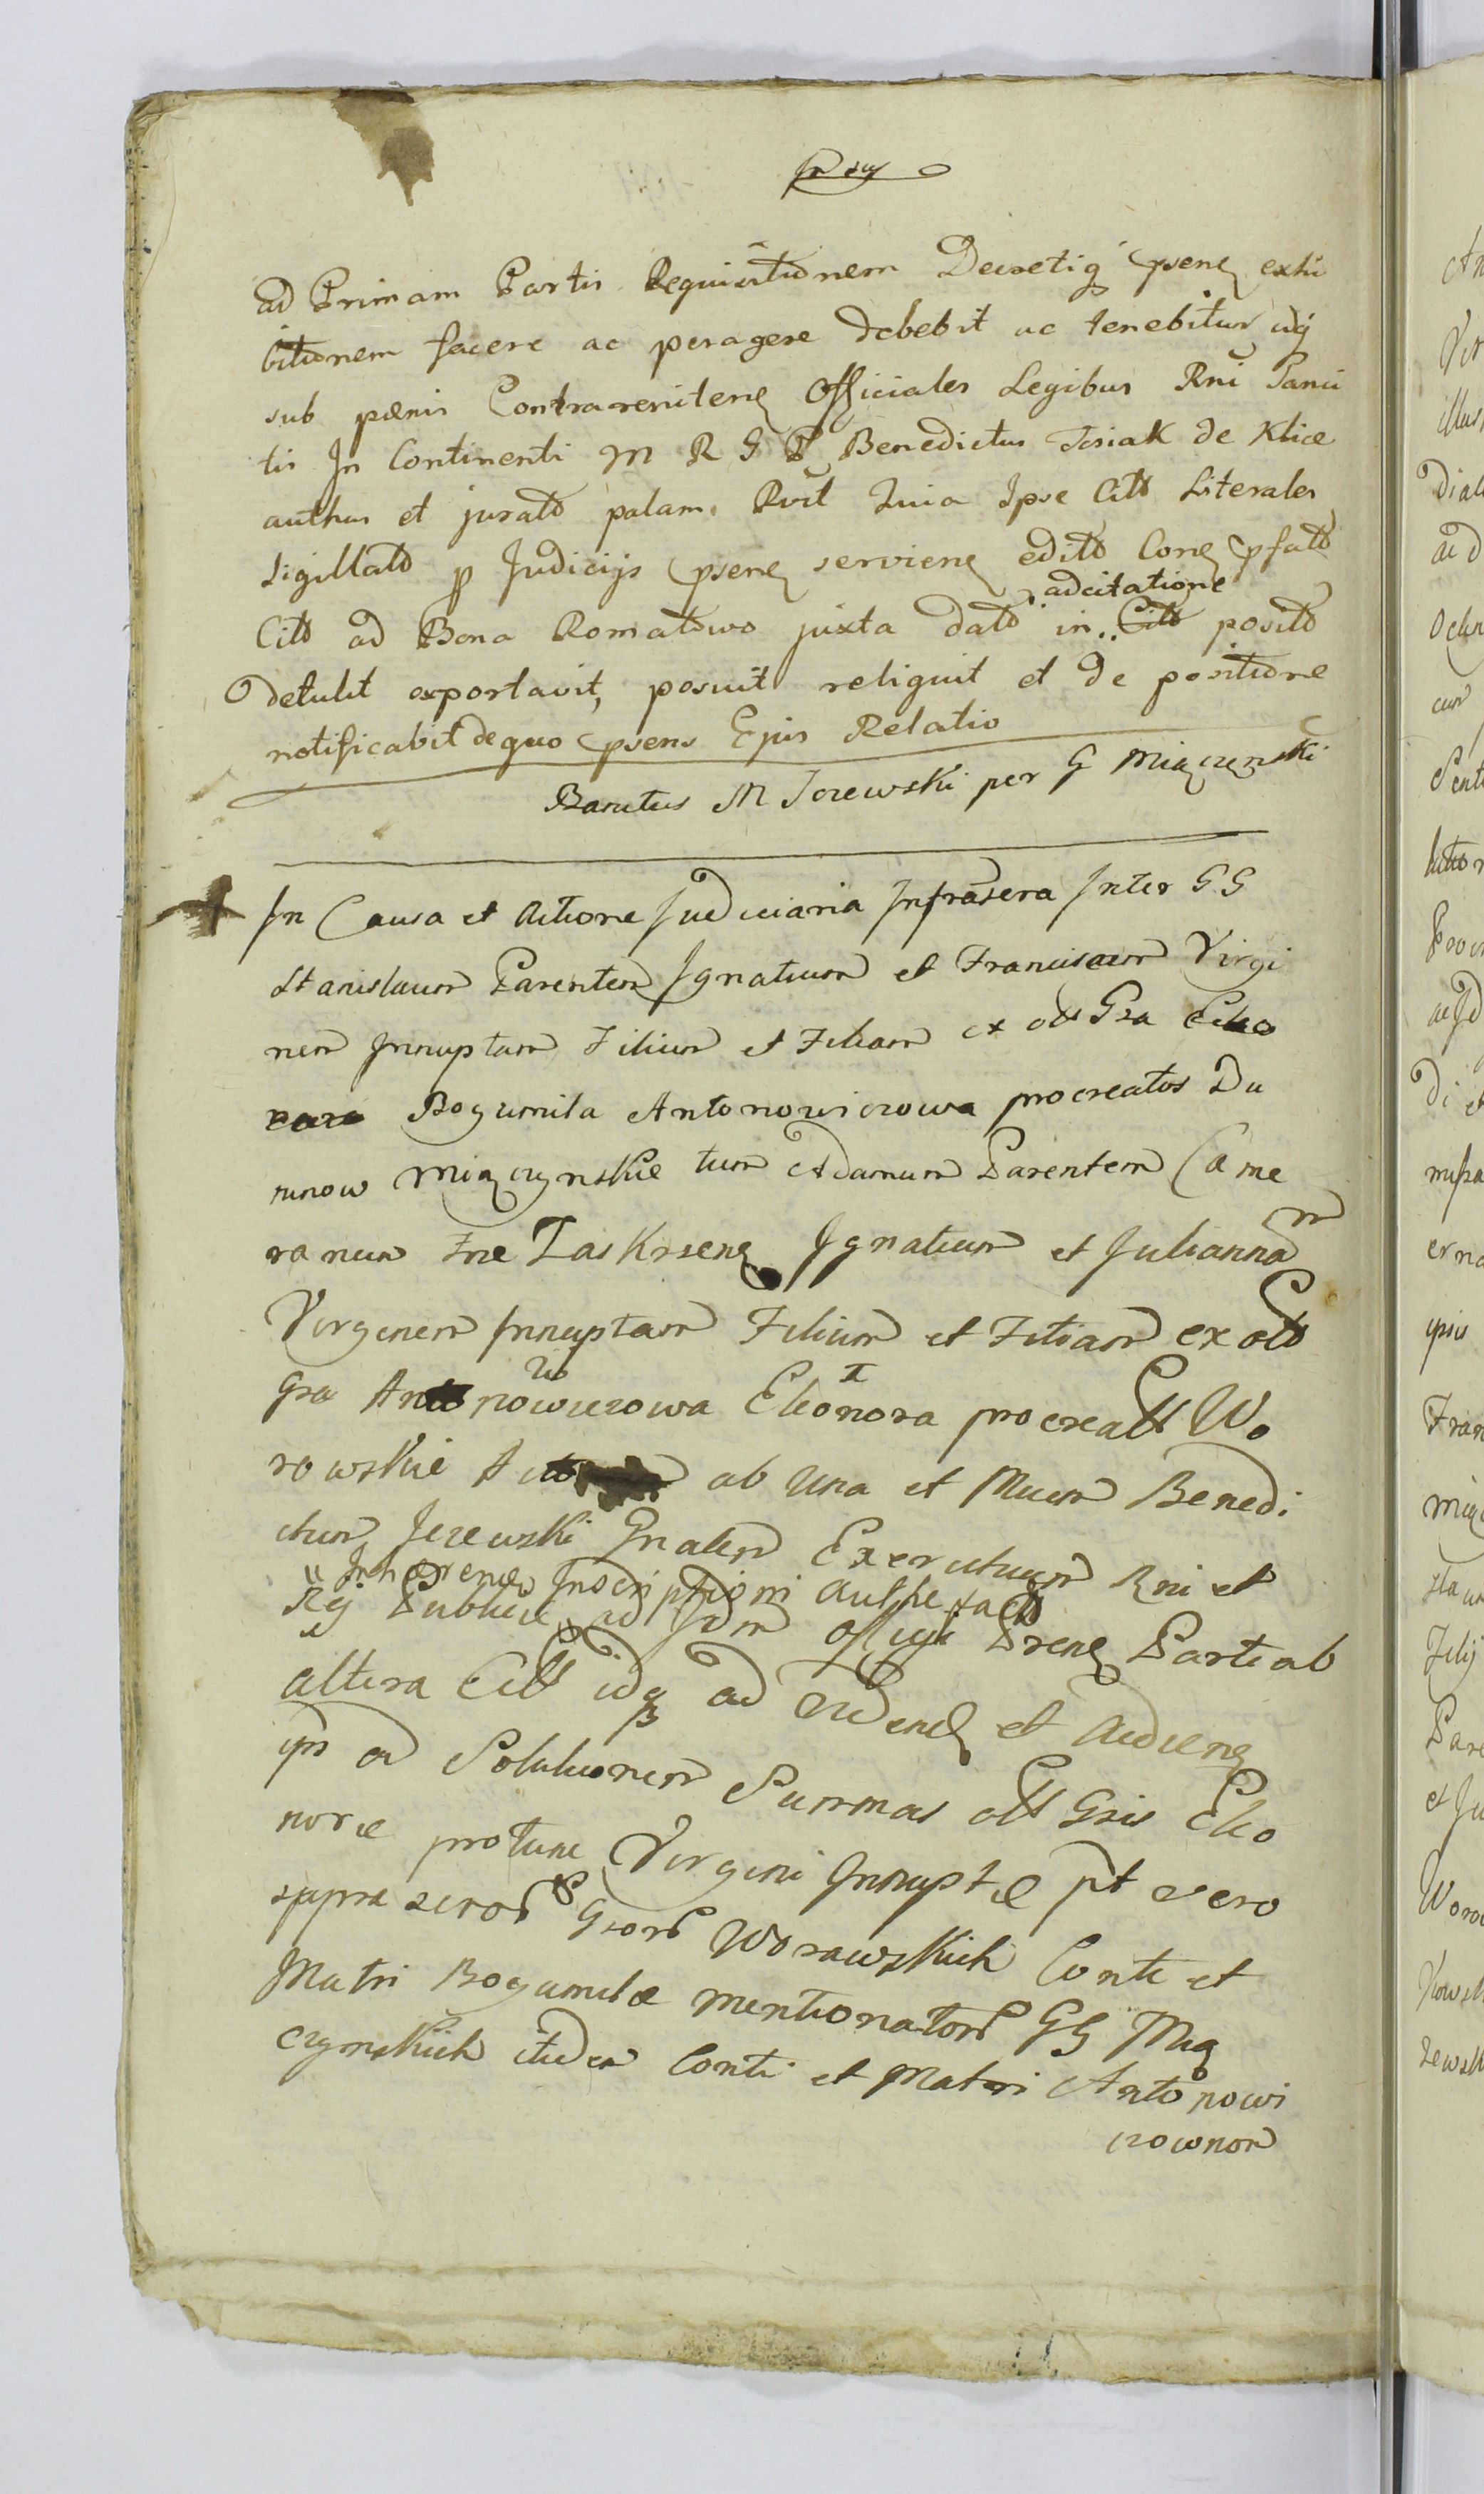 ad Primam Partis Requisitionem Decretiq psene exhi
bitionem facere ac peragere debebit ac tenebitur idq
sub pænis Contravenitene Officiales Legibus Rni Sanci
tis In Continenti M R G P Benedictus Tosiak de Klice
authus et jurato palam Rvit Quia Ipse Citt Literales
Sigillato p Judicijs psene serviene edito Cone pfato
adcitatione
Citt ad Bona Romatowo juxta dato in Citt posito
detulit exportavit, posuit reliquit et de positione
notificabit de quo psens Ejus Relatio
M Jezewski per G Miączenski
In Causa et Actione Judiciaria Infrasera Inter GG
Stanislaum Parentem Ignatium et Franciscam Virgi
nem Innuptam Filium et Filiam ex olt Gsa Eleo
Bogumila Antonowiczowa procreatos Du
ninow Miączynskie tum Adamum Parentem Came
ranum Ignatium et Juliannam
Virginem Innuptam Filium et Filiam ex olt
Gsa Antonowiczowa Eleonora procreatt Wo
rowskie ab Una et Mucum Benedi
ctum Jezewski Gnalem Exercituum Rni et
Inhærende Inscriptioni authe
Rej Publicæ ad Idm Officij Prene Parte ab
altera Citt idq ad Videne et Audiene
ipi a Solutionem Summas olt Gsis Eleo
noræ protunc Virgini Innuptæ pt vero
supra Gsorr Worawskich Conti et
Matri Bogumilæ mentionatorr GG Mią
czynskich itidem Conti et Matri Antonowi
czownom